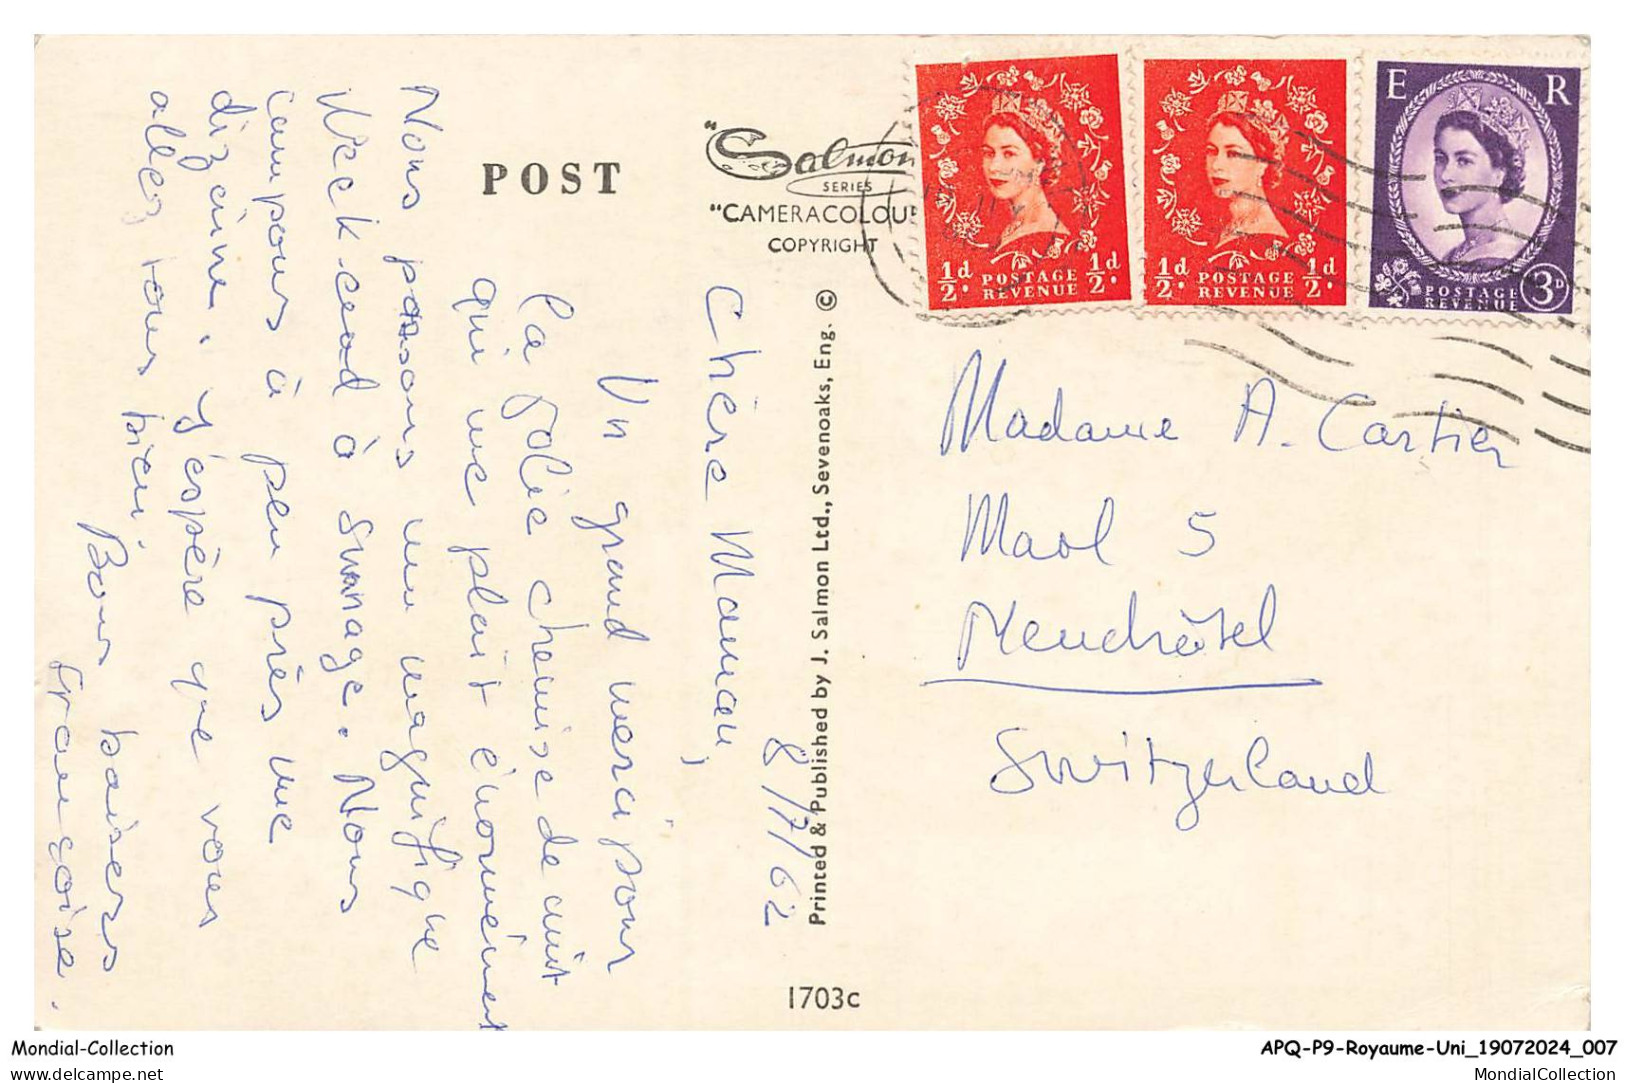 POST
"Salmon
SERIES
"CAMERACOLOUR
COPYRIGHT
½d. POSTAGE REVENUE ½d.
½d. POSTAGE REVENUE ½d.
E R
POSTAGE REVENUE 3D
8/7/62
Chère Maman,
Un grand merci pour
la jolie chemise de nuit
qui me plait énormément
Nous passons un magnifique
Week-end à Swanage. Nous
campons à peu près une
dizaine. J'espère que vous
allez tous bien.
Bons baisers
Françoise.
Printed & Published by J. Salmon Ltd., Sevenoaks, Eng. ©
1703c
Madame A. Cartier
Maol 5
Neuchâtel
Switzerland
Mondial-Collection
delcampe.net
APQ-P9-Royaume-Uni_19072024_007
MondialCollection